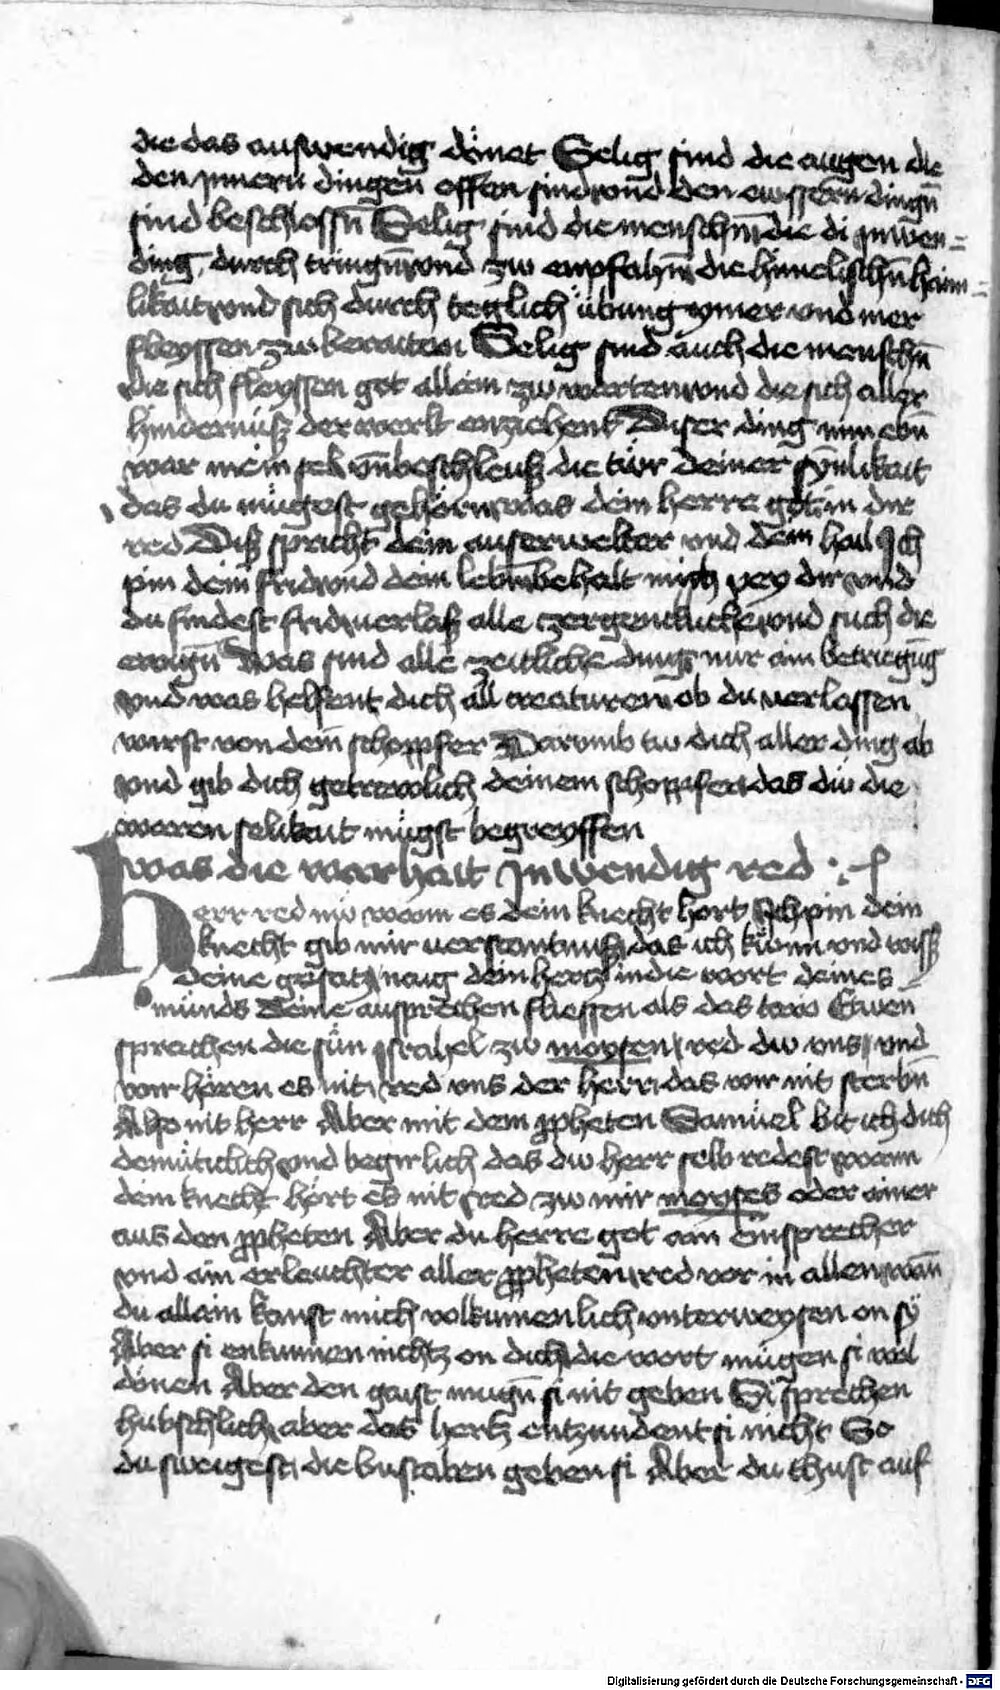 die das auswendig dönet Selig sind die augen die
den jnnern dingen offen sind vnd den ewssern dingn̄
sind beschlossn̄ Selig sind die menschn̄ die di jnwen=
ding durch tringn̄ vnd zw enpfahn̄ die himelischn̄ haim=
likait vnd sich durch teglich übung ymer vnd mer
fleyssen zw beraiten Selig sind auch die menschn̄
die sich fleyssen got allain zw warten vnd die sich aller
hindernüß der werlt enziehent Diser ding nim ebn̄
war mein sel vn̄ beschleuß die tür deiner synlikait
das du mügest gehörn was dein herre got in dir
red Diß spricht dein auserwelter vnd dein hail Ich
pin dein frid vnd dein lebn̄ behalt mich pey dir vnd
du findest frid verlaß alle zergencklicke vnd such die
ewign̄ Was sind alle zeitliche ding nur ain betriegūg
vnd was helfent dich all creaturen ob du verlassen
wirst von dem schopffer Darumb tw dich aller ding ab
vnd gib dich getrewlich deinem schopffer das dw die
waren selikait mügst begreyffen
was die warhait Jnwendig red
Herr red nw wann es dein knecht hort Ich pin dein
knecht gib mir verstantnuß das ich künn vnd wiss
deine gesatz naig dein hertz in die wort deines
munds Deine aussprechen fliessen als das taw Etwen
sprachen die sün jsrahel zw moysen red dw vns vnd
wir hören es nit red vns der herr das wir nit sterbn̄
Also nit herr Aber mit dem ppheten Samuel bit ich dich
demüticlich vnd begirlich das dw herr selb redest wann
dein knecht hört es nit red zw mir moyses oder ainer
aus den ppheten Aber du herre got ain einsprecher
vnd ain erleuchter aller ppheten red vor in allen wan̄
du allain kanst mich volkumenlich vnterweysen on sy
Aber si enkunnen nichtz on dich die wort mügen si wol
dönen Aber den gaist mugn̄ si nit geben Si sprechen
hubschlich aber das hertz entzundent si nicht So
du sweigest die bustaben geben si Aber du thust auf
Digitalisierung gefördert durch die Deutsche Forschungsgemeinschaft - DFG